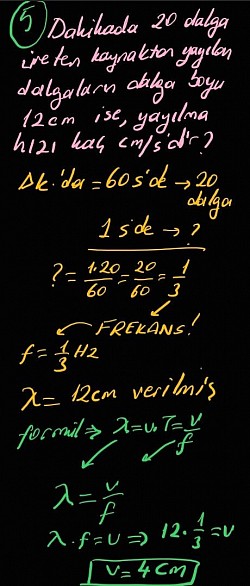 5 Dakikada 20 dalga
üreten kaynaktan yayılan
dalgaların dalga boyu
12 cm ise, yayılma
hızı kaç cm/s'dir?
Dk.'da = 60 s'de → 20
dalga
1 s de → ?
? = 1.20/60 = 20/60 = 1/3
FREKANS!
f = 1/3 Hz
λ = 12 cm verilmiş
formül ⇒ λ = υ.T = υ/f
λ = υ/f
λ.f = υ ⇒ 12. 1/3 = υ
υ = 4 cm